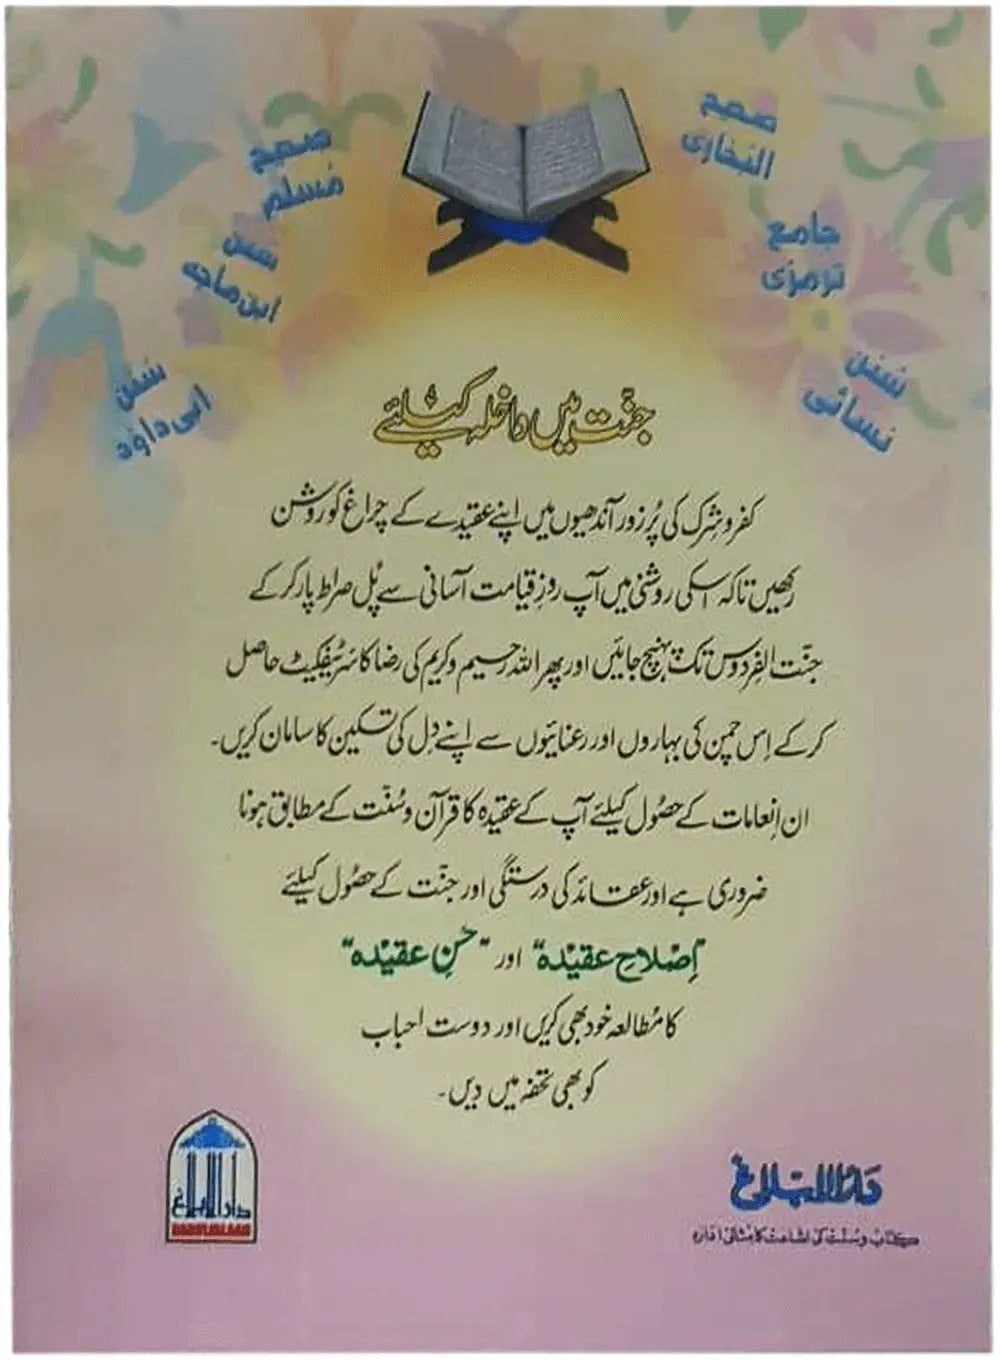 صحیح
البخاری
صحیح
مسلم
جامع
ترمزی
سنن
ابن ماجہ
سنن
نسائی
سنن
ابی داؤد
جنّت میں داخلہ کیلئے
کفر و شِرک کی پُر زور آندھیوں میں اپنے عقیدے کے چراغ کو روشن
رکھیں تاکہ اسکی روشنی میں آپ روزِ قیامت آسانی سے پُل صراط پار کر کے
جنّت الفِردوس تک پہنچ جائیں اور پھر اللہ رحیم و کریم کی رضا کا سرٹیفکیٹ حاصل
کر کے اِس چمن کی بہاروں اور رعنائیوں سے اپنے دِل کی تسکین کا سامان کریں۔
ان اِنعامات کے حصُول کیلئے آپ کے عقیدہ کا قرآن و سُنّت کے مطابق ہونا
ضروری ہے اور عقائد کی درستگی اور جنّت کے حصُول کیلئے
"اِصْلاحِ عقیْدہ" اور "حسْنِ عقیْدہ"
کا مُطالعہ خود بھی کریں اور دوست احباب
کو بھی تحفہ میں دیں۔
دارالابلاغ
DARUL IBLAGH
دَارُالابلاغ
کتاب و سُنّت کی اشاعت کا مثالی ادارہ